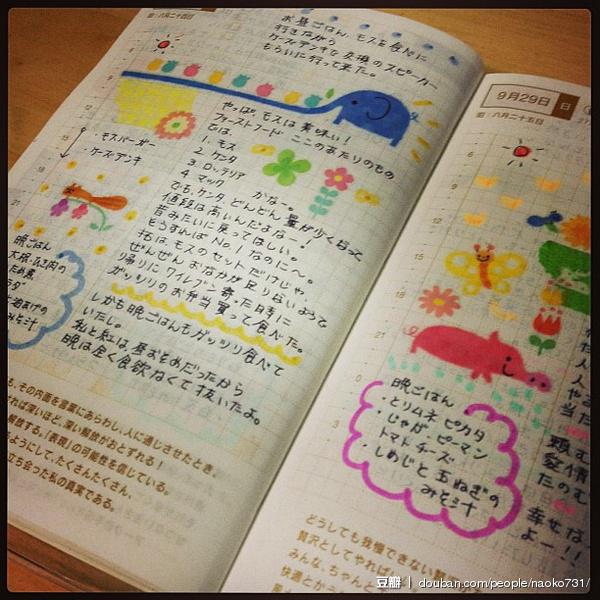 旧：八月二十四日
お昼ごはん、モスを食べに
行きながら
ケーズデンキで交換のスピーカー
もらいに行って来た。
やっぱ、モスは美味い！
ファーストフード ここのあたりのもの
では、
1. モス
2. ケンタ
3. ロッテリア
4. マック かな〜。
でも、ケンタ、どんどん量が少くなって
値段は高いんだよなー！
昔みたいに戻ってほしい。
そうすれば No.1 なのに〜。
私は、モスのセットだけじゃ、
ぜんぜんおなかが足りないようで
帰りに ワイレブン 寄った時に
ガッツリのお弁当買って食べた。
しかも晩ごはんもガッツリ食べて
いたし。
私と紅は昼おそめだったから
晩は全く食欲なくて抜いたよ。
・モスバーガー
・ケーズデンキ
晩ごはん
みそ汁
も、その内面を言葉にあらわし、人に通じさせたとき、
ければ深いほど、深い解放がおとずれる！
解放する、「表現」の可能性を信じている。
ようにして、たくさんたくさん、
立ち会った私の真実である。
9
12
15
18
21
9月29日 日
旧：八月二十五日
9
12
15
18
21
0
3
晩ごはん
・とりムネピカタ
・じゃがピーマン
トマトチーズ
・しめじと玉ねぎの
みそ汁
幸せな
よー！！
どうしても我慢できない
贅沢としてやれば
みんな、ちゃんと
豆瓣 | douban.com/people/naoko731/